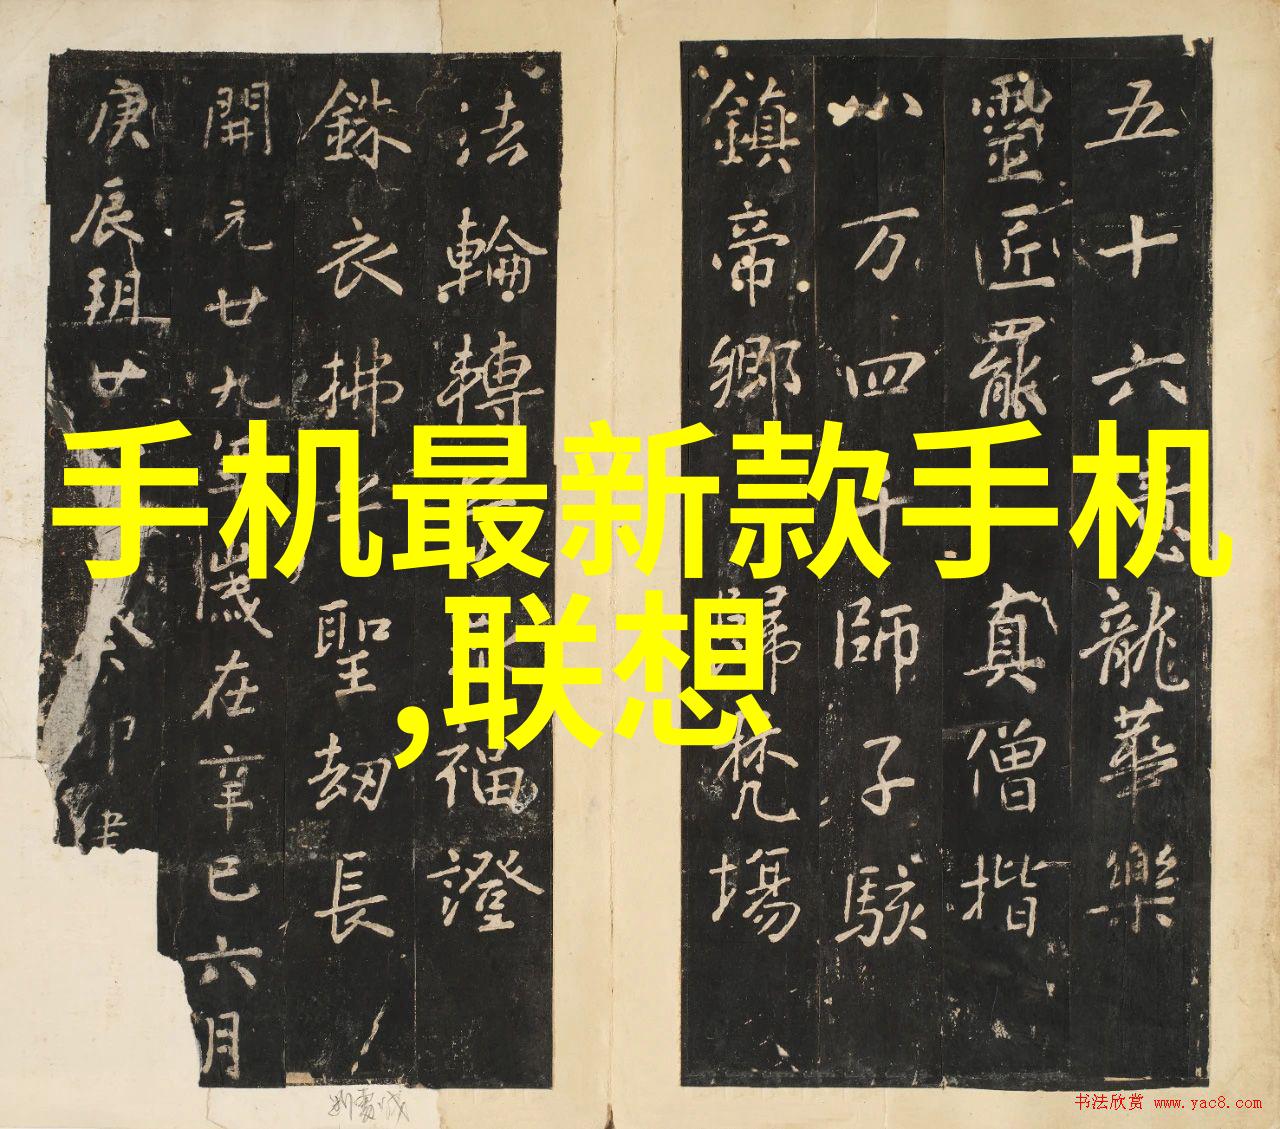 五十六億龍華樂
靈匠罷 真僧揩
八万四千師子駭
鎮帝鄉 歸梵場
法輪轉 福證
銖衣拂 聖劫長
開元廿九年歲在辛巳六月
庚辰朔廿 癸卯建
手机最新款手机
,联想
书法欣赏 www.yac8.com